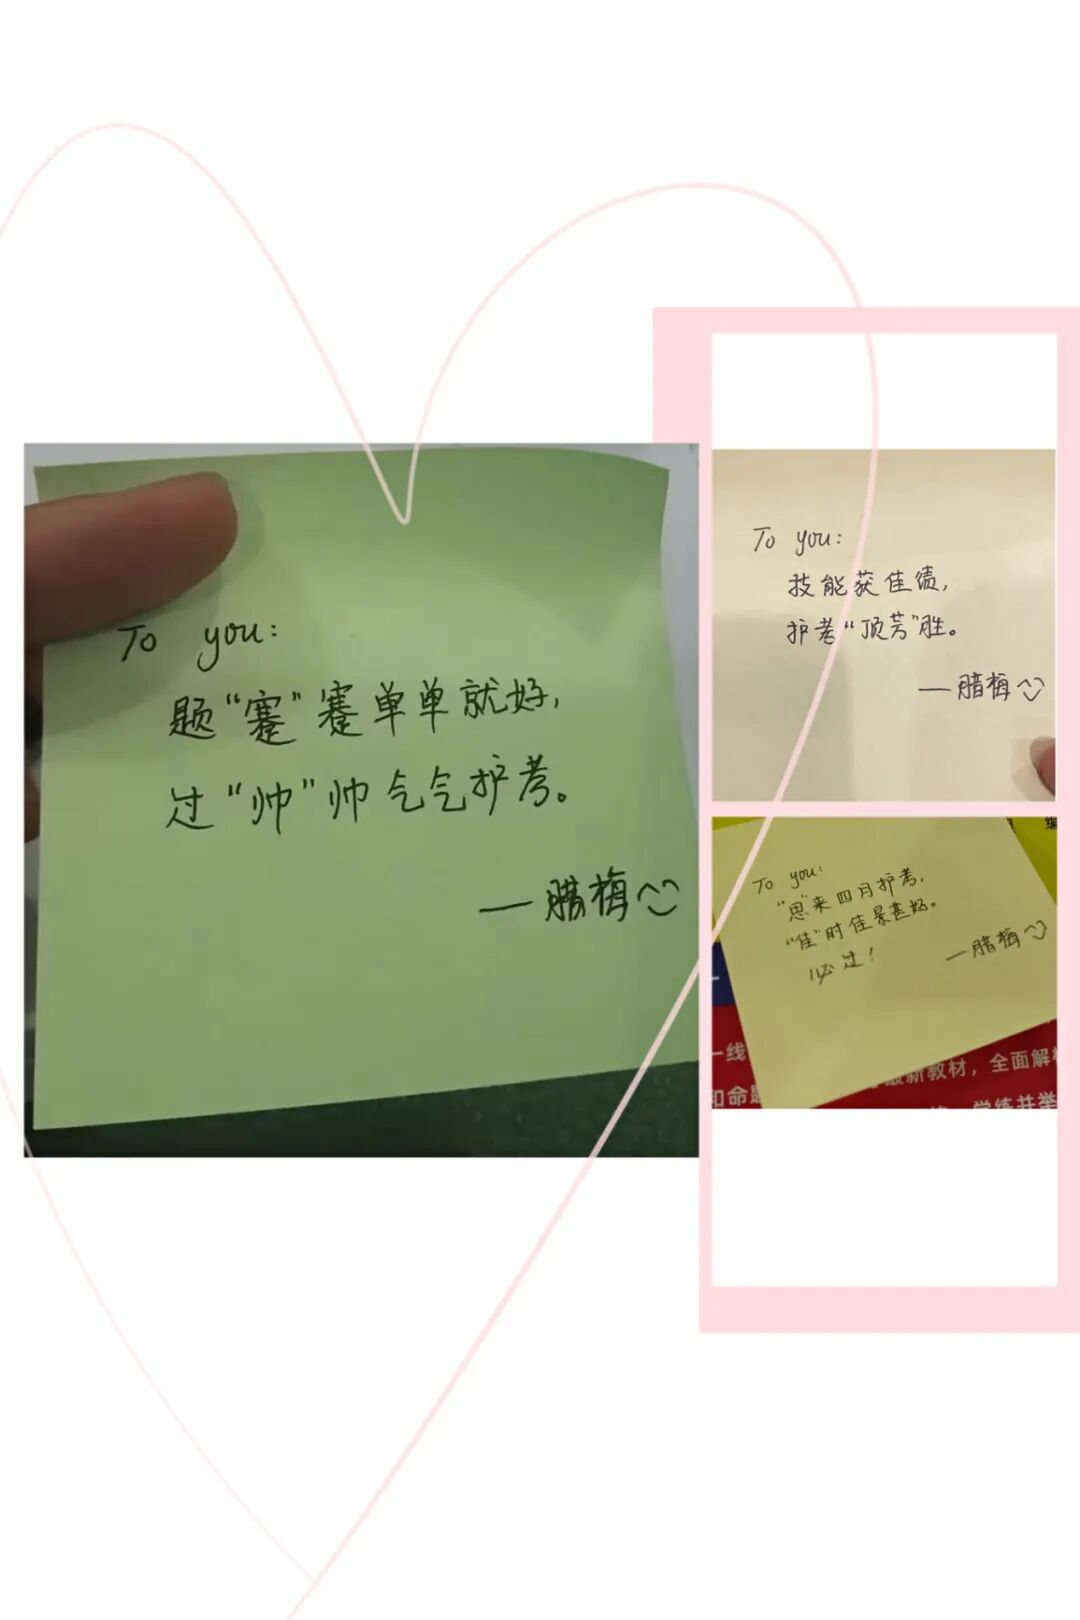 To you:
题“蹇”蹇单单就好,
过“帅”帅气气护考。
—腊梅
To you:
技能获佳绩,
护考“顶芳”胜。
—腊梅
To you:
“思”来四月护考,
“佳”时佳景甚好。
必过!
—腊梅
一线
最新教材，全面解
和命题
学练并举
编